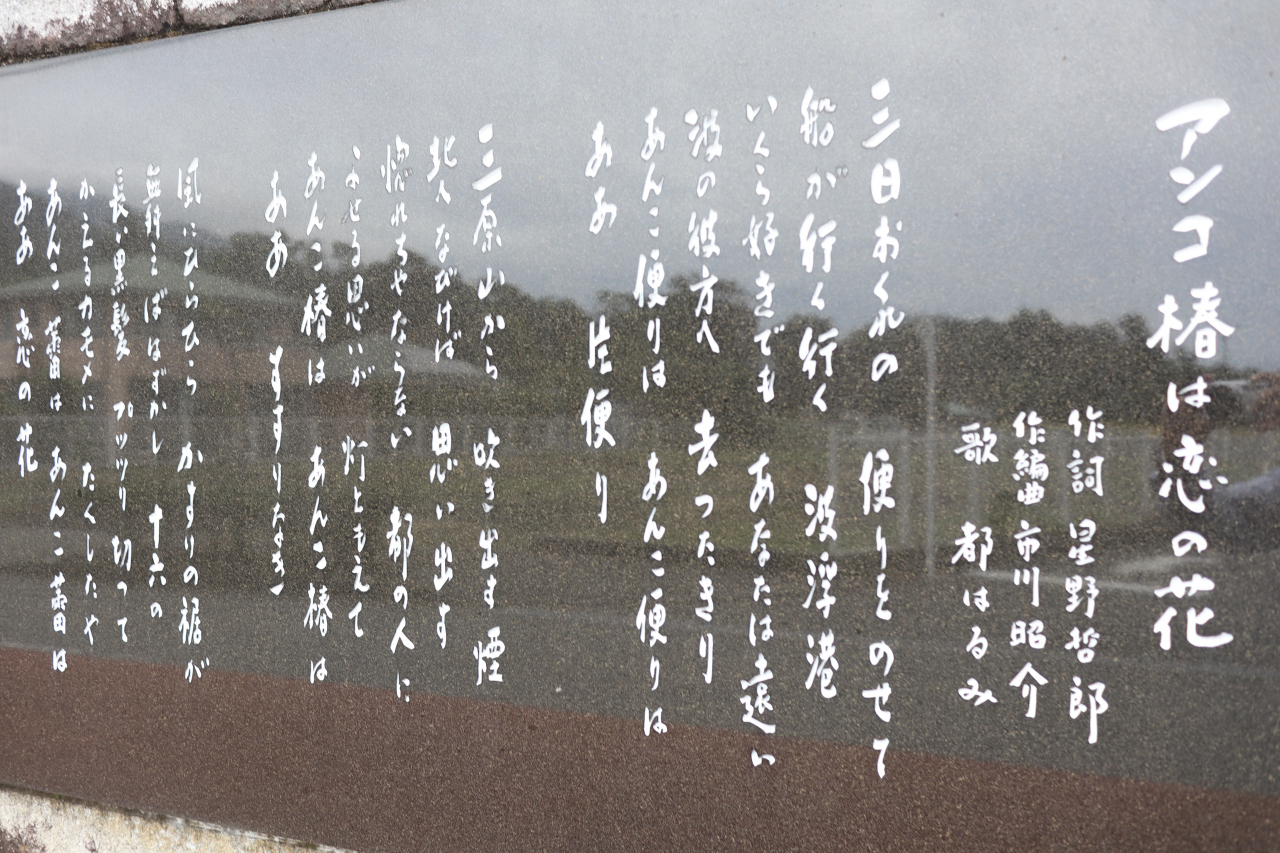 アンコ椿は恋の花
作詞 星野哲郎
作編曲 市川昭介
歌 都はるみ
三日おくれの 便りをのせて
船が行く行く 波浮港
いくら好きでも あなたは遠い
波の彼方へ 去ったきり
あんこ便りは あんこ便りは
ああ 片便り
三原山から 吹き出す煙
北へなびけば 思い出す
惚れちゃならない 都の人に
よせる思いが 灯ともえて
あんこ椿は あんこ椿は
ああ すすりなき
風にひらひら かすりの裾が
無料えばはずかし 十六の
長い黒髪 プッツリ切って
かえるカモメに たくしたや
あんこ蕾は あんこ蕾は
ああ 恋の花